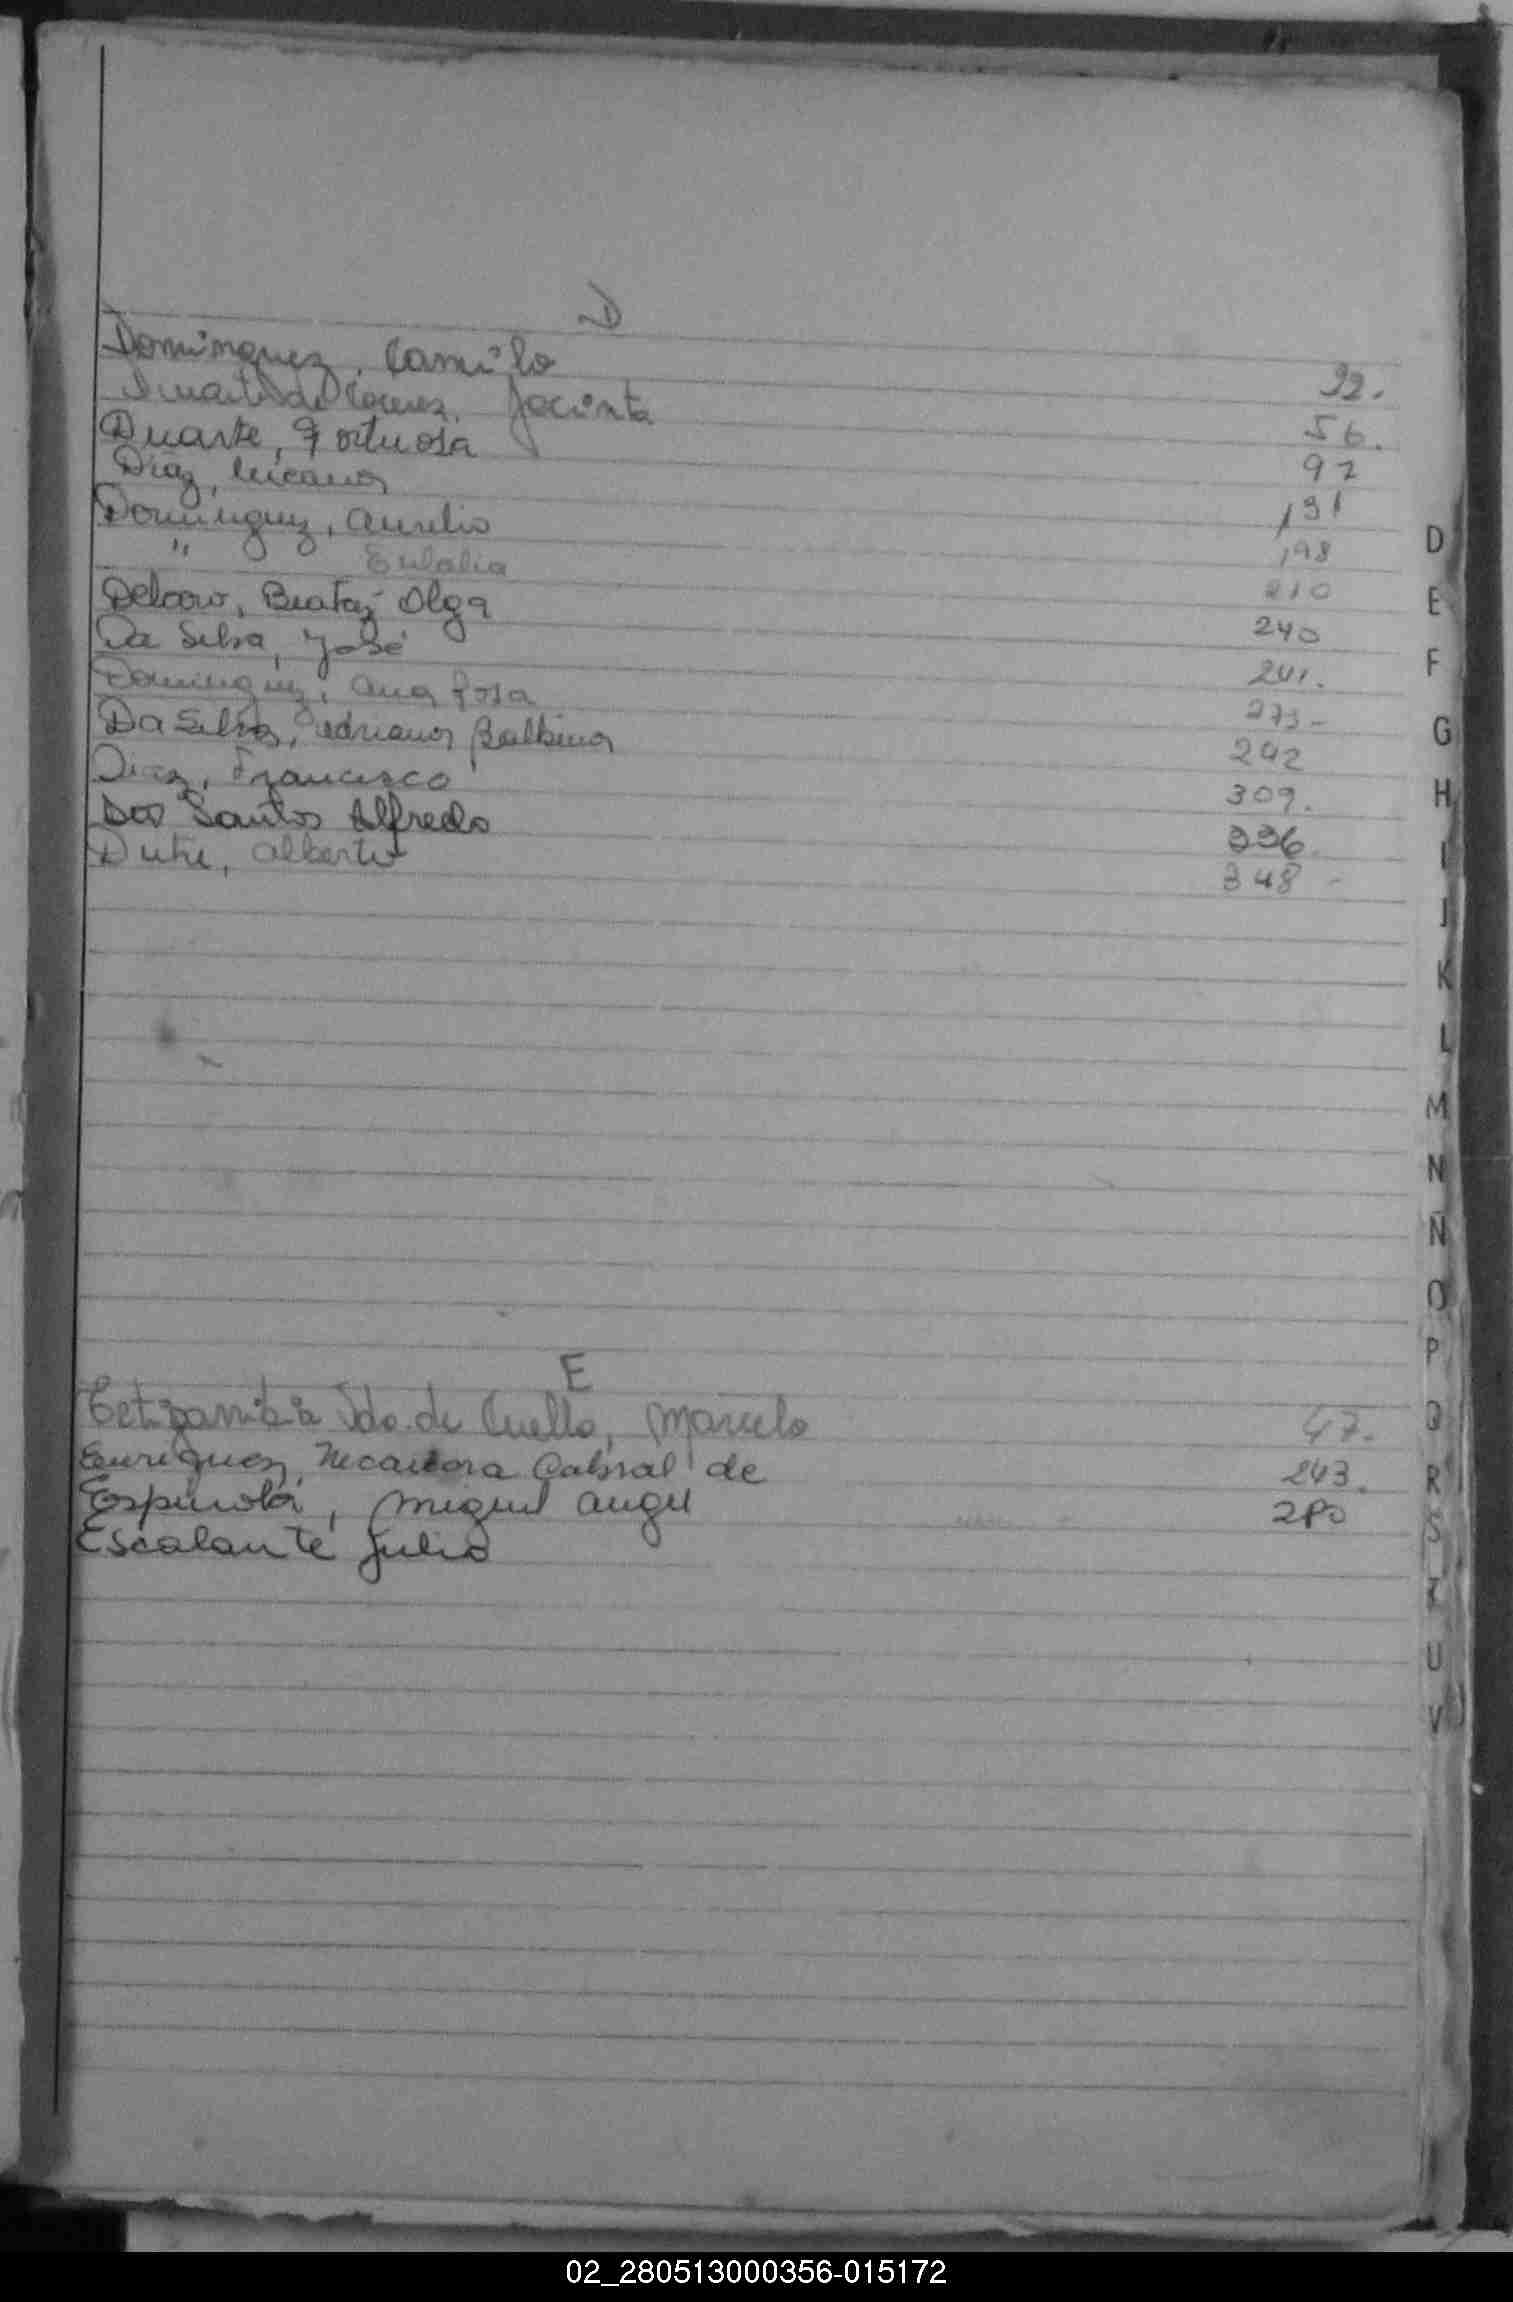 D
Dominguez, Camilo 32.
Duarte de Jacinta 56.
Duarte, Fortuosa 97
Diaz, Nicanor 131
Dominguez, Aurelio 198
" Eulalia 210
Beatriz Olga 240
Da Silva, José 241.
Dominguez, Ana Rosa 273-
Da Silva, Adriano Balbino 242
Diaz, Francisco 309.
Dos Santos Alfredo 336.
Alberto 348 -
E
Vda. de Cuello, Marcelo 47.
Enriquez, Nicanora Cabral de 243.
Espinola, Miguel Angel 280
Escalante Julio
D
E
F
G
H
I
J
K
L
M
N
Ñ
O
P
Q
R
S
T
U
V
02_280513000356-015172